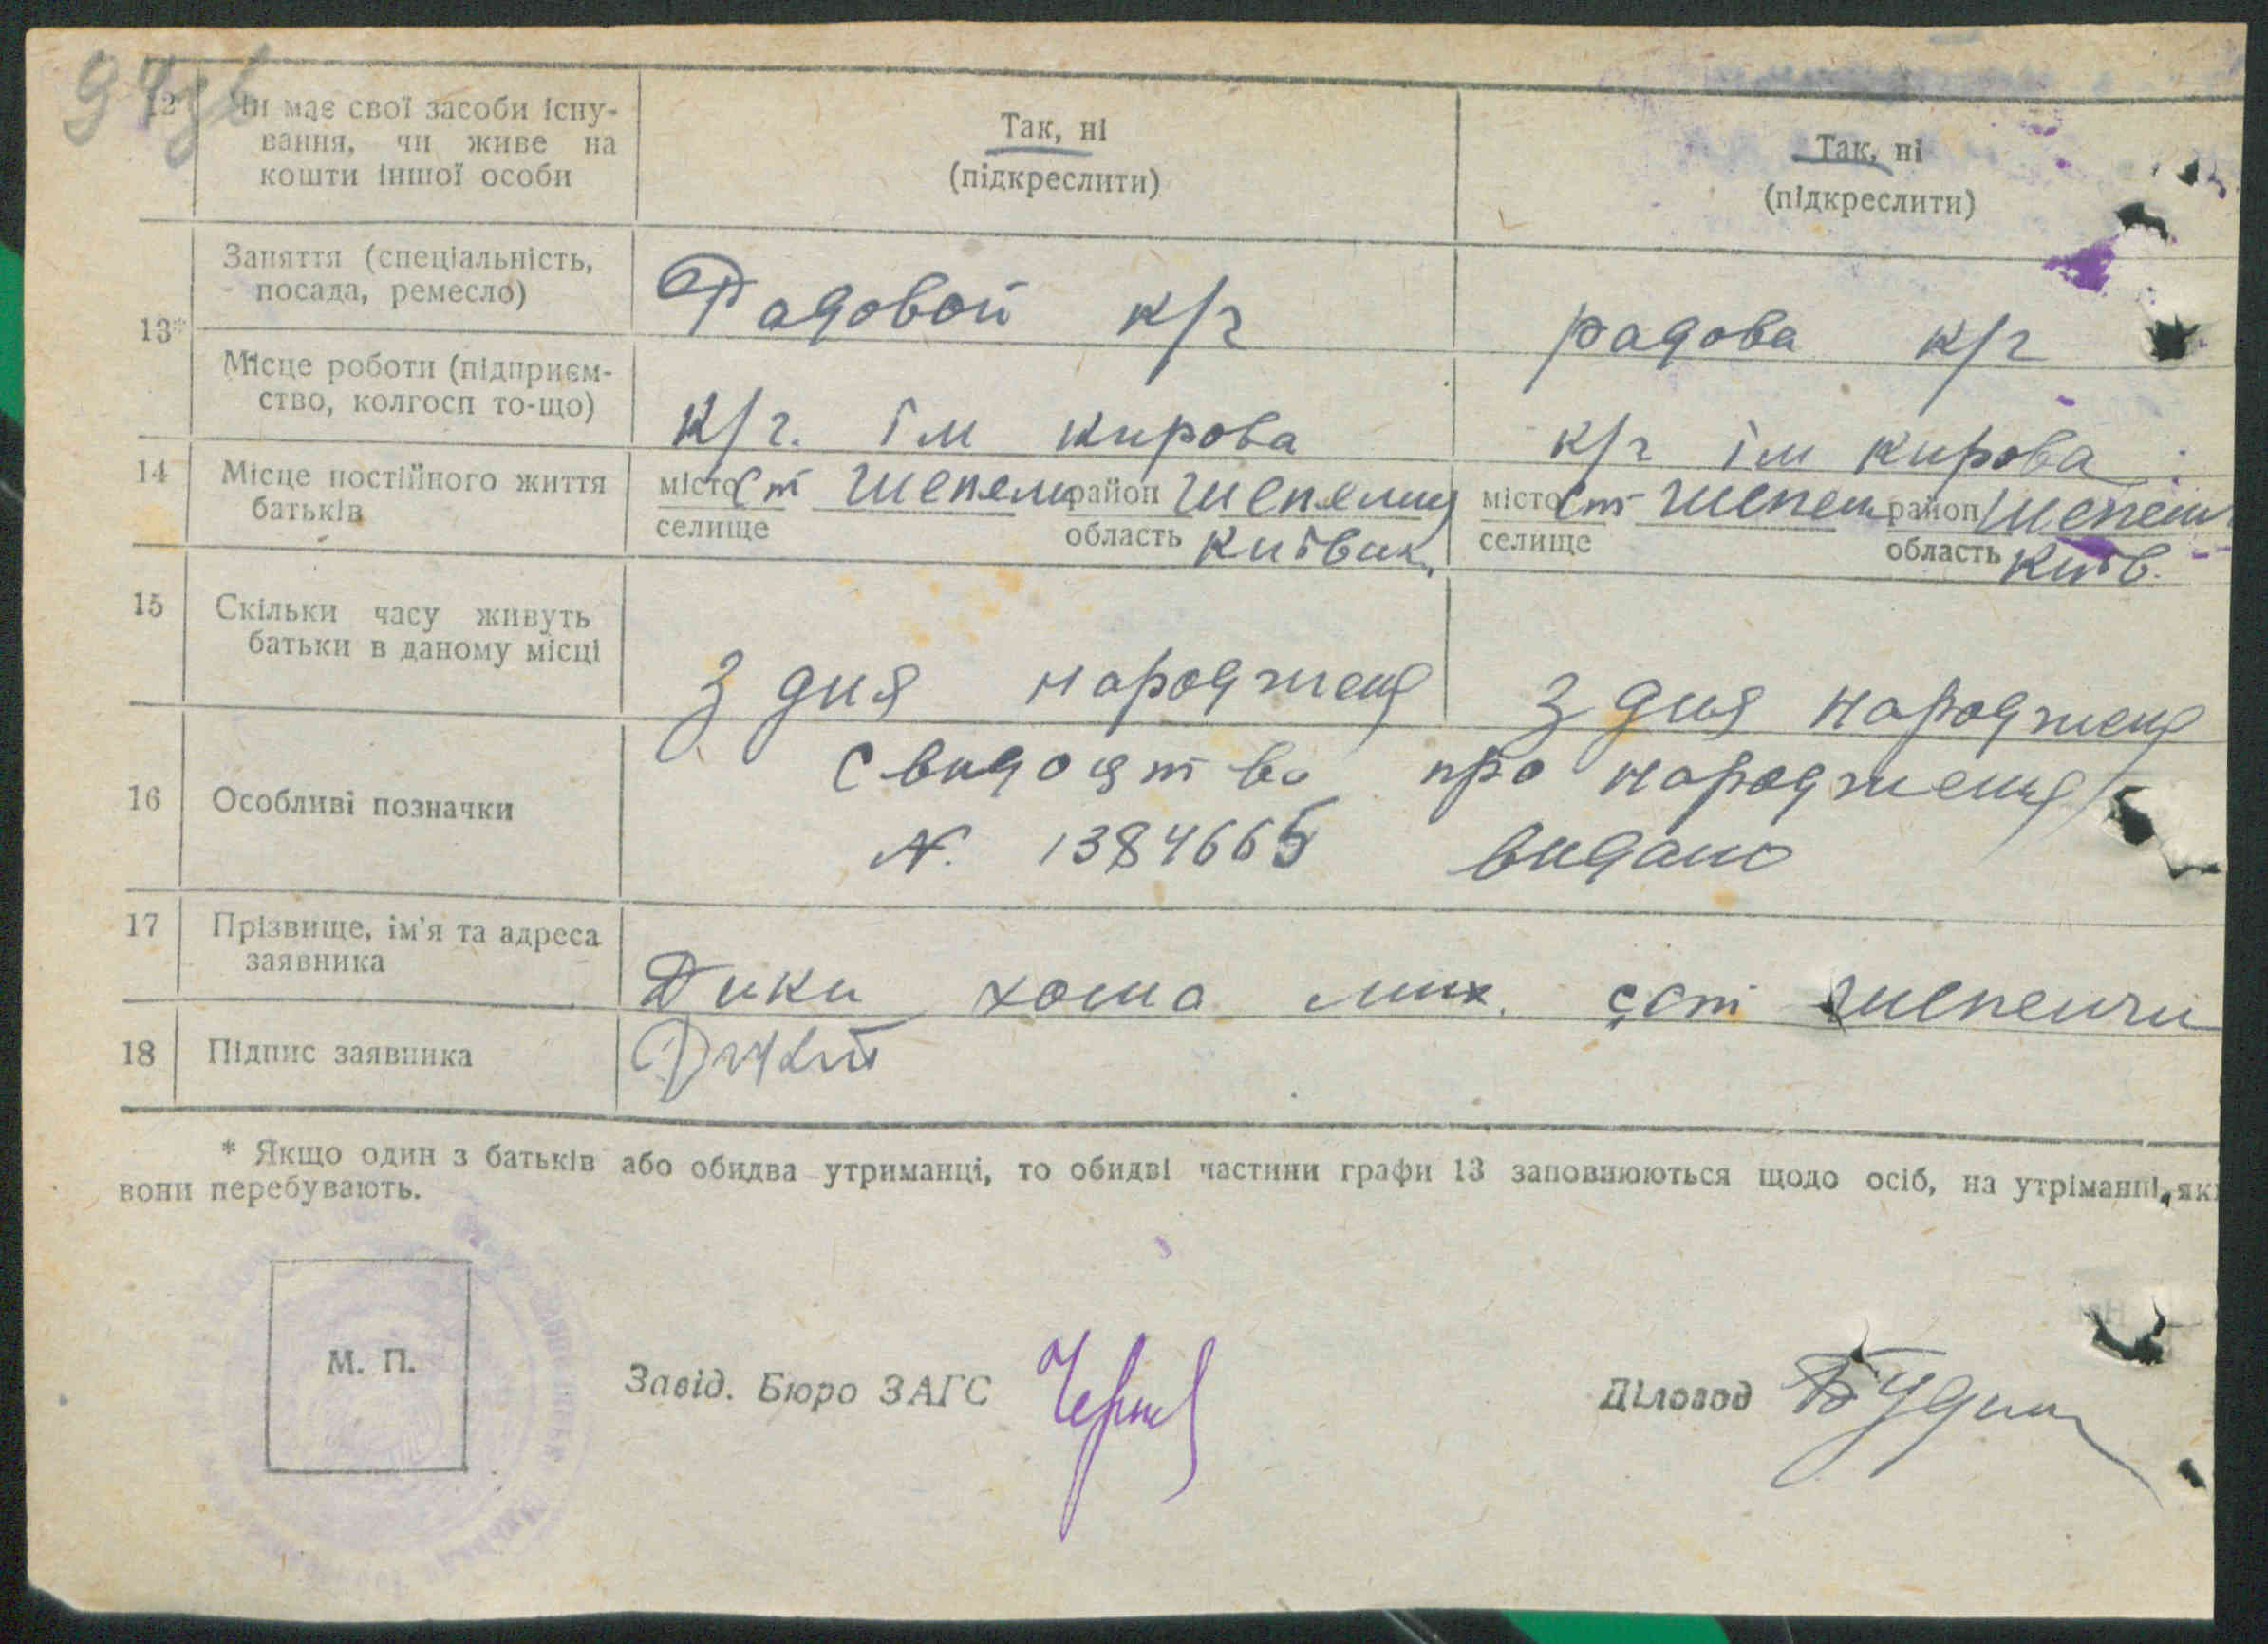 94зв
12 Чи має свої засоби існу-
вання, чи живе на
кошти іншої особи
Так, ні
(підкреслити)
Так, ні
(підкреслити)
13* Заняття (спеціальність,
посада, ремесло)
Радовой к/г
радова к/г
Місце роботи (підприєм-
ство, колгосп то-що)
К/г. ім кирова
к/г ім кирова
14 Місце постійного життя
батьків
місто ст Шепели район Шепелиц
селище область Київськ.
місто ст Шепел район Шепел
селище область Київ.
15 Скільки часу живуть
батьки в даному місці
З дня народженя
З дня народженя
16 Особливі позначки
Свидоцтво про народженя
N. 1384665 видано
17 Прізвище, ім'я та адреса
заявника
Дики хома мих. ст Шепеличи
18 Підпис заявника
Дикий
* Якщо один з батьків або обидва утриманці, то обидві частини графи 13 заповнюються щодо осіб, на утріманні, як
вони перебувають.
М. П.
Завід. Бюро ЗАГС
Діловод